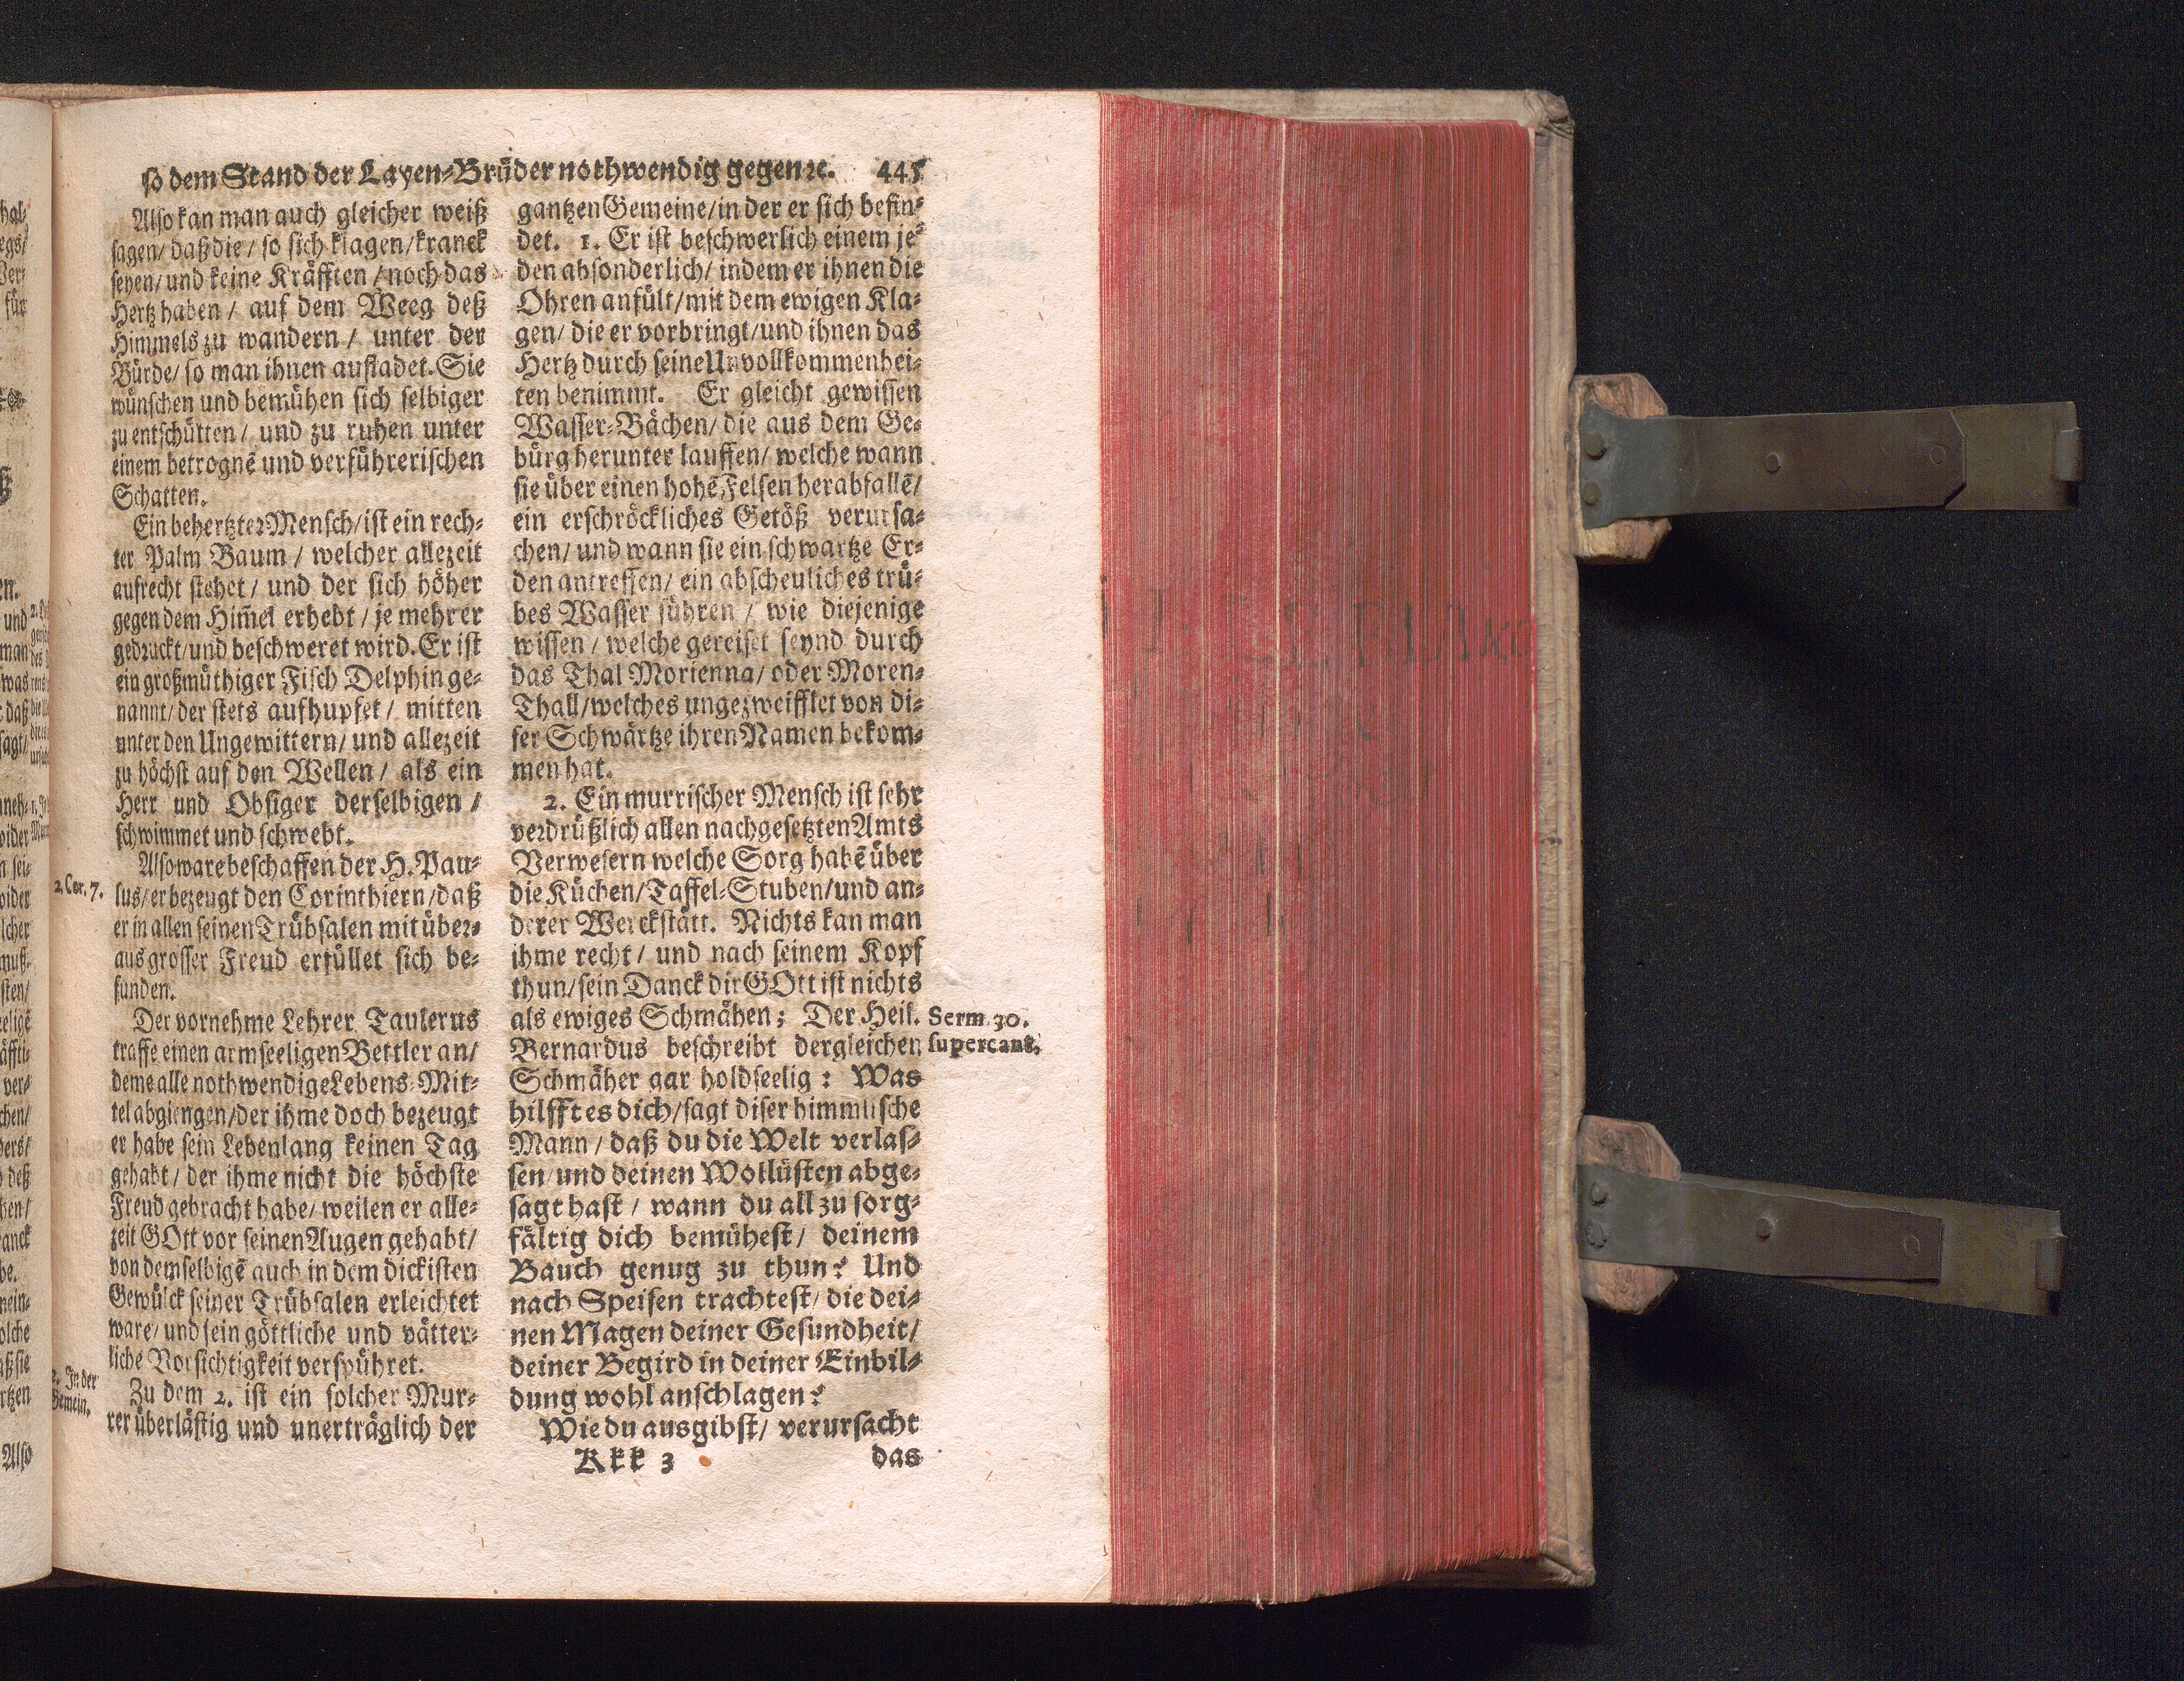 so dem Stand der Layen-Brüder nothwendig gegen ꝛc. 445
Also kan man auch gleicher weiß
sagen/ daß die/ so sich klagen/ kranck
seyen/ und keine Kräfften/ noch das
Hertz haben/ auf dem Weeg deß
Himmels zu wandern/ unter der
Bürde/ so man ihnen aufladet. Sie
wünschen und bemühen sich selbiger
zu entschütten/ und zu ruhen unter
einem betrognē und verführerischen
Schatten.
Ein behertzter Mensch/ ist ein rech-
ter Palm Baum/ welcher allezeit
aufrecht stehet/ und der sich höher
gegen dem Him̃el erhebt/ je mehr er
gedruckt/ und beschweret wird. Er ist
ein großmüthiger Fisch Delphin ge-
nannt/ der stets aufhupfet/ mitten
unter den Ungewittern/ und allezeit
zu höchst auf den Wellen/ als ein
Herr und Obsiger derselbigen/
schwimmet und schwebt.
Also ware beschaffen der H. Pau-
2. Cor. 7.
lus/ er bezeugt den Corinthiern/ daß
er in allen seinen Trübsalen mit über-
aus grosser Freud erfüllet sich be-
funden.
Der vornehme Lehrer Taulerus
traffe einen armseeligen Bettler an/
deme alle nothwendige Lebens-Mit-
tel abgiengen/ der ihme doch bezeugt
er habe sein Lebenlang keinen Tag
gehabt/ der ihme nicht die höchste
Freud gebracht habe/ weilen er alle-
zeit GOtt vor seinen Augen gehabt/
von demselbigē auch in dem dickisten
Gewülck seiner Trübsalen erleichtet
ware/ und sein göttliche und vätter-
liche Vorsichtigkeit verspühret.
2. In der
Gemein.
Zu dem 2. ist ein solcher Mur-
rer überlästig und unerträglich der
gantzen Gemeine/ in der er sich befin-
det. 1. Er ist beschwerlich einem je-
den absonderlich/ indem er ihnen die
Ohren anfült/ mit dem ewigen Kla-
gen/ die er vorbringt/ und ihnen das
Hertz durch seine Unvollkommenhei-
ten benimmt. Er gleicht gewissen
Wasser-Bächen/ die aus dem Ge-
bürg herunter lauffen/ welche wann
sie über einen hohē Felsen herabfallē/
ein erschröckliches Getöß verursa-
chen/ und wann sie ein schwartze Er-
den antreffen/ ein abscheuliches trü-
bes Wasser führen/ wie diejenige
wissen/ welche gereiset seynd durch
das Thal Morienna/ oder Moren-
Thall/ welches ungezweifflet von di-
ser Schwärtze ihren Namen bekom-
men hat.
2. Ein murrischer Mensch ist sehr
verdrüßlich allen nachgesetzten Amts
Verwesern welche Sorg habē über
die Küchen/ Taffel-Stuben/ und an-
derer Werckstätt. Nichts kan man
ihme recht/ und nach seinem Kopf
thun/ sein Danck dir GOtt ist nichts
als ewiges Schmähen; Der Heil.
Serm. 30.
Bernardus beschreibt dergleichen
super cant.
Schmäher gar holdseelig: Was
hilfft es dich/ sagt diser himmlische
Mann/ daß du die Welt verlas-
sen/ und deinen Wollüsten abge-
sagt hast/ wann du all zu sorg-
fältig dich bemühest/ deinem
Bauch genug zu thun? Und
nach Speisen trachtest/ die dei-
nen Magen deiner Gesundheit/
deiner Begird in deiner Einbil-
dung wohl anschlagen?
Wie du ausgibst/ verursacht
Kkk 3 das